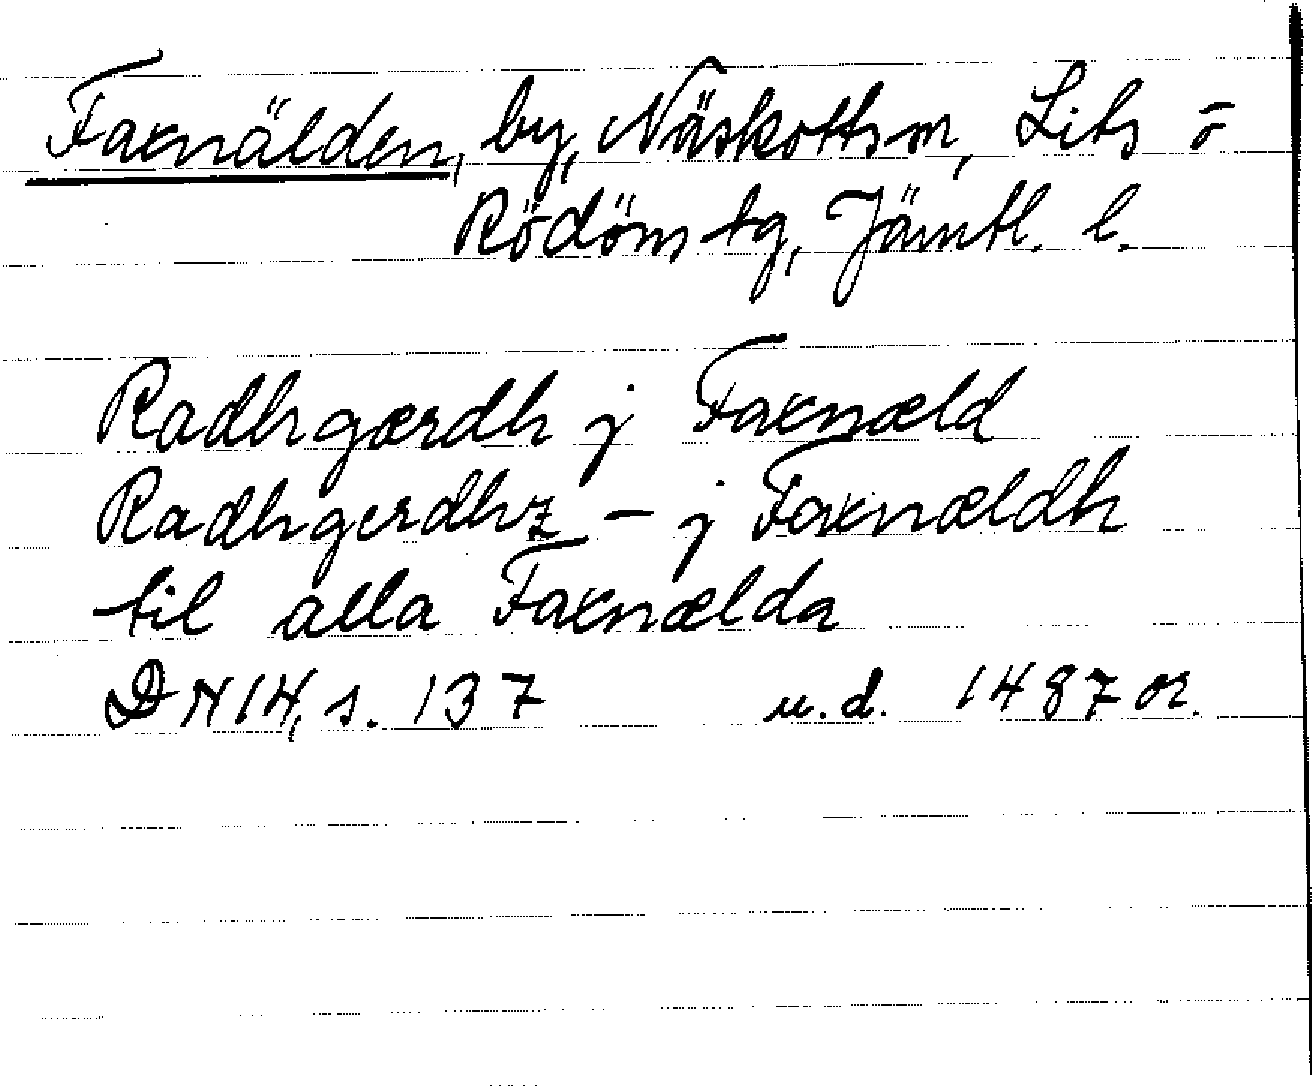 Faxnälden, by, Näskotts sn, Lits o
Rödöns tg, Jämtl. l.
Radhgærdh j Faxnæld
Radhgerdhz – j Faxnældh
til alla Faxnælda
DN 14, s. 137 u.d. 1487 or.